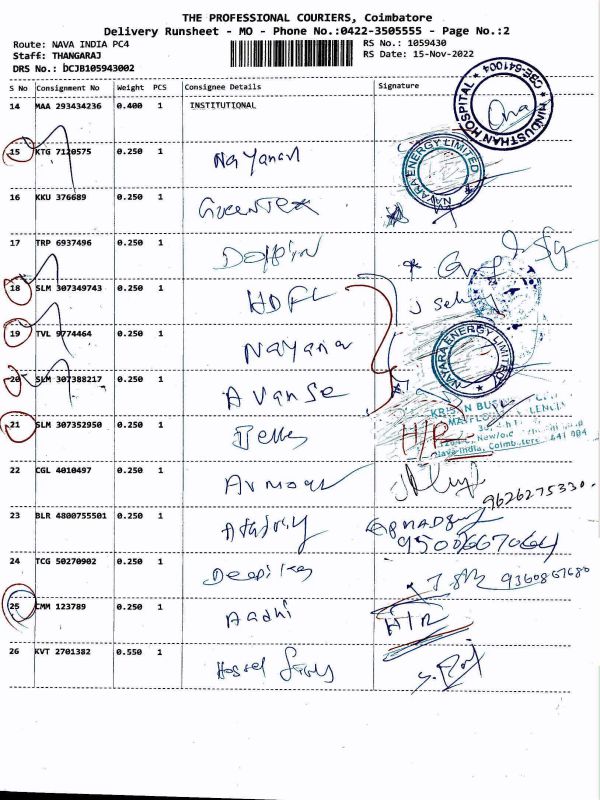 THE PROFESSIONAL COURIERS, Coimbatore
Delivery Runsheet - MO - Phone No.:0422-3505555 - Page No.:2
Route: NAVA INDIA PC4 RS No.: 1059430
Staff: THANGARAJ RS Date: 15-Nov-2022
DRS No.: DCJB105943002
S No Consignment No Weight PCS Consignee Details Signature
14 MAA 293434236 0.400 1 INSTITUTIONAL
HINDUSTHAN HOSPITAL * CBE-641004 *
15 KTG 7120575 0.250 1 Nayanan
NAYARA ENERGY LIMITED
16 KKU 376689 0.250 1 Greentex
17 TRP 6937496 0.250 1 Dolphin
18 SLM 307349743 0.250 1 HDFC
19 TVL 9774464 0.250 1 Nayana
NAYARA ENERGY LIMITED
20 SLM 307388217 0.250 1 Avanse
21 SLM 307352950 0.250 1 H/R
Nava-India, Coimbatore
22 CGL 4010497 0.250 1
9626275330
23 BLR 4800755501 0.250 1
9500667064
24 TCG 50270902 0.250 1 Deepika 9360867680
25 CMM 123789 0.250 1 Aadhi H/R
26 KVT 2701382 0.550 1